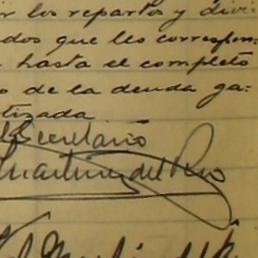 r los repartos y divi-
dos que les correspon-
hasta el completo
o de la deuda ga-
tizada
Secretario
Martinez del Rio